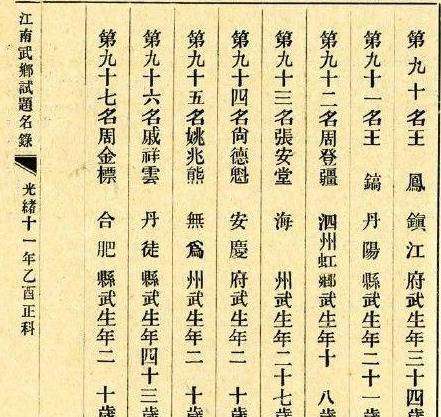 第九十名王　鳳　鎮江府武生年三十四歲
第九十一名王　鎬　丹陽縣武生年二十一歲
第九十二名周登疆　泗州虹鄉武生年十八歲
第九十三名張安堂　海州武生年二十七歲
第九十四名尙德魁　安慶府武生年二十歲
第九十五名姚兆熊　無爲州武生年二十歲
第九十六名戚祥雲　丹徒縣武生年四十三歲
第九十七名周金標　合肥縣武生年二十歲
江南武鄉試題名錄　光緖十一年乙酉正科